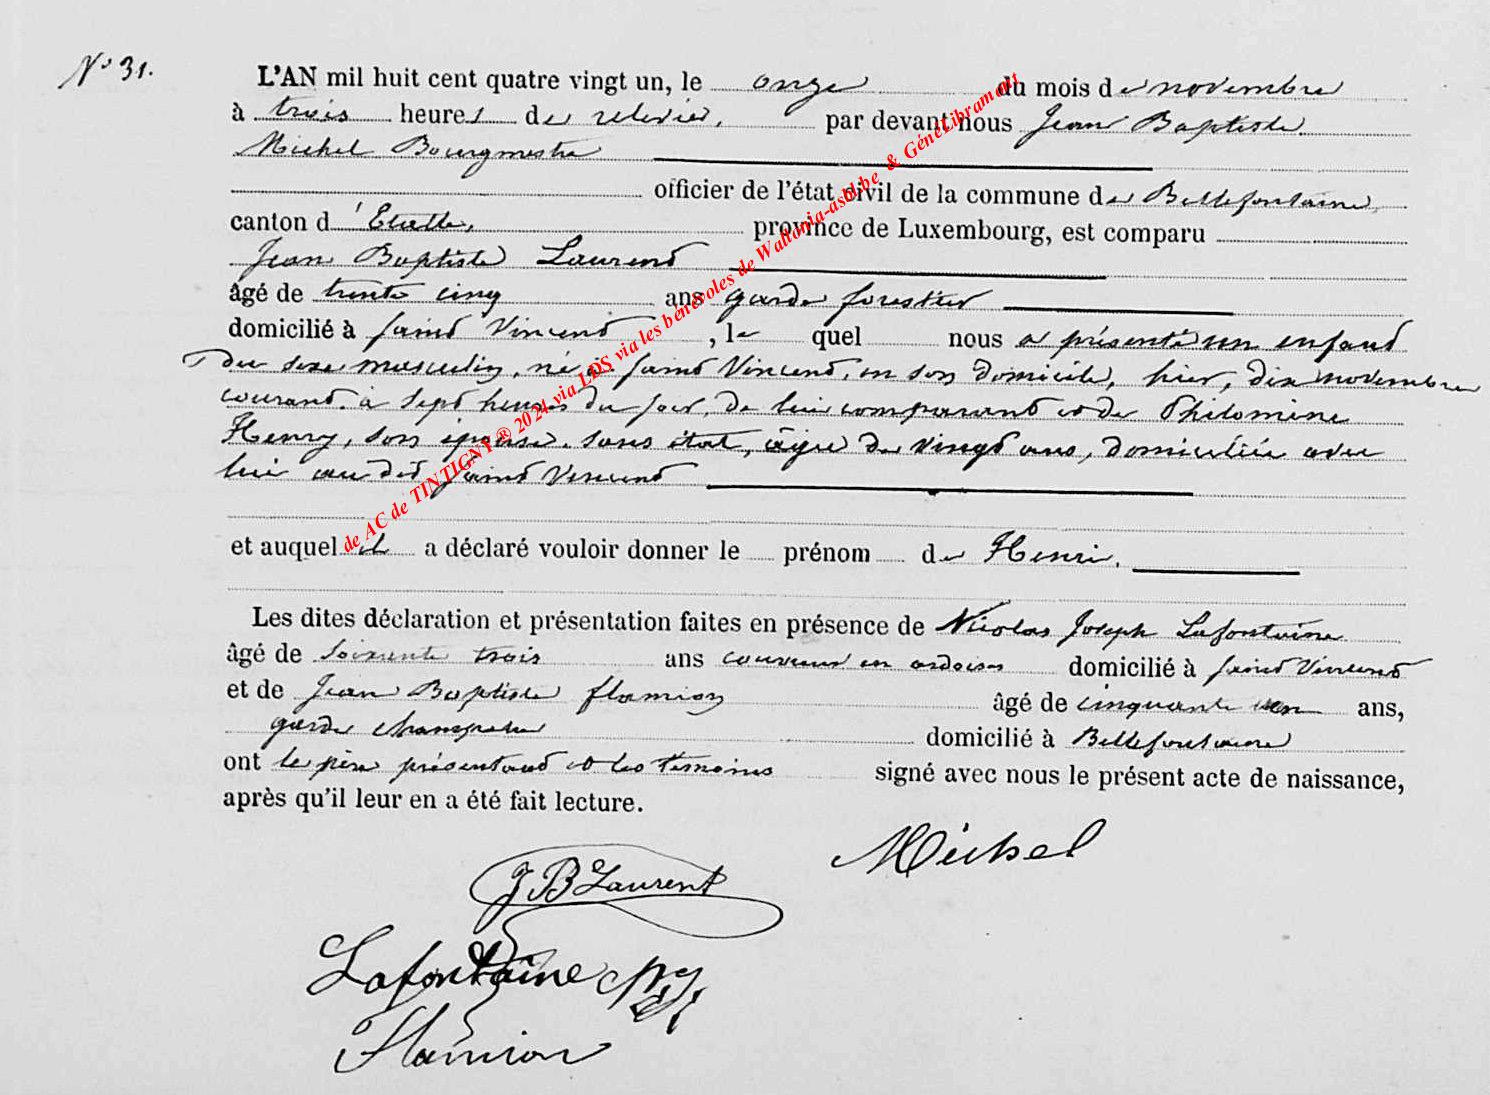 N° 31.
L'AN mil huit cent quatre vingt un, le onze du mois de novembre
à trois heures de relevée, par devant nous Jean Baptiste
Michel Bourgmestre
officier de l'état civil de la commune de Bellefontaine,
canton d'Etalle, province de Luxembourg, est comparu
Jean Baptiste Laurent
âgé de trente cinq ans garde forestier
domicilié à Saint Vincent, le quel nous a présenté un enfant
du sexe masculin, né à Saint Vincent, en son domicile, hier, dix novembre
courant, à sept heures du soir, de lui comparant et de Philomène
Henry, son épouse, sans état, âgée de vingt ans, domiciliée avec
lui au dit Saint Vincent
et auquel il a déclaré vouloir donner le prénom de Henri.
Les dites déclaration et présentation faites en présence de Nicolas Joseph Lafontaine
âgé de soixante trois ans couvreur en ardoises domicilié à Saint Vincent
et de Jean Baptiste Flamion âgé de cinquante un ans,
garde champêtre domicilié à Bellefontaine
ont le père présentant et les témoins signé avec nous le présent acte de naissance,
après qu'il leur en a été fait lecture.
Michel
J B Laurent
Lafontaine
Flamion
de AC de TINTIGNY ® 2024 via LDS via les bénévoles de Wallonia-asbl.be & GénéLibramont